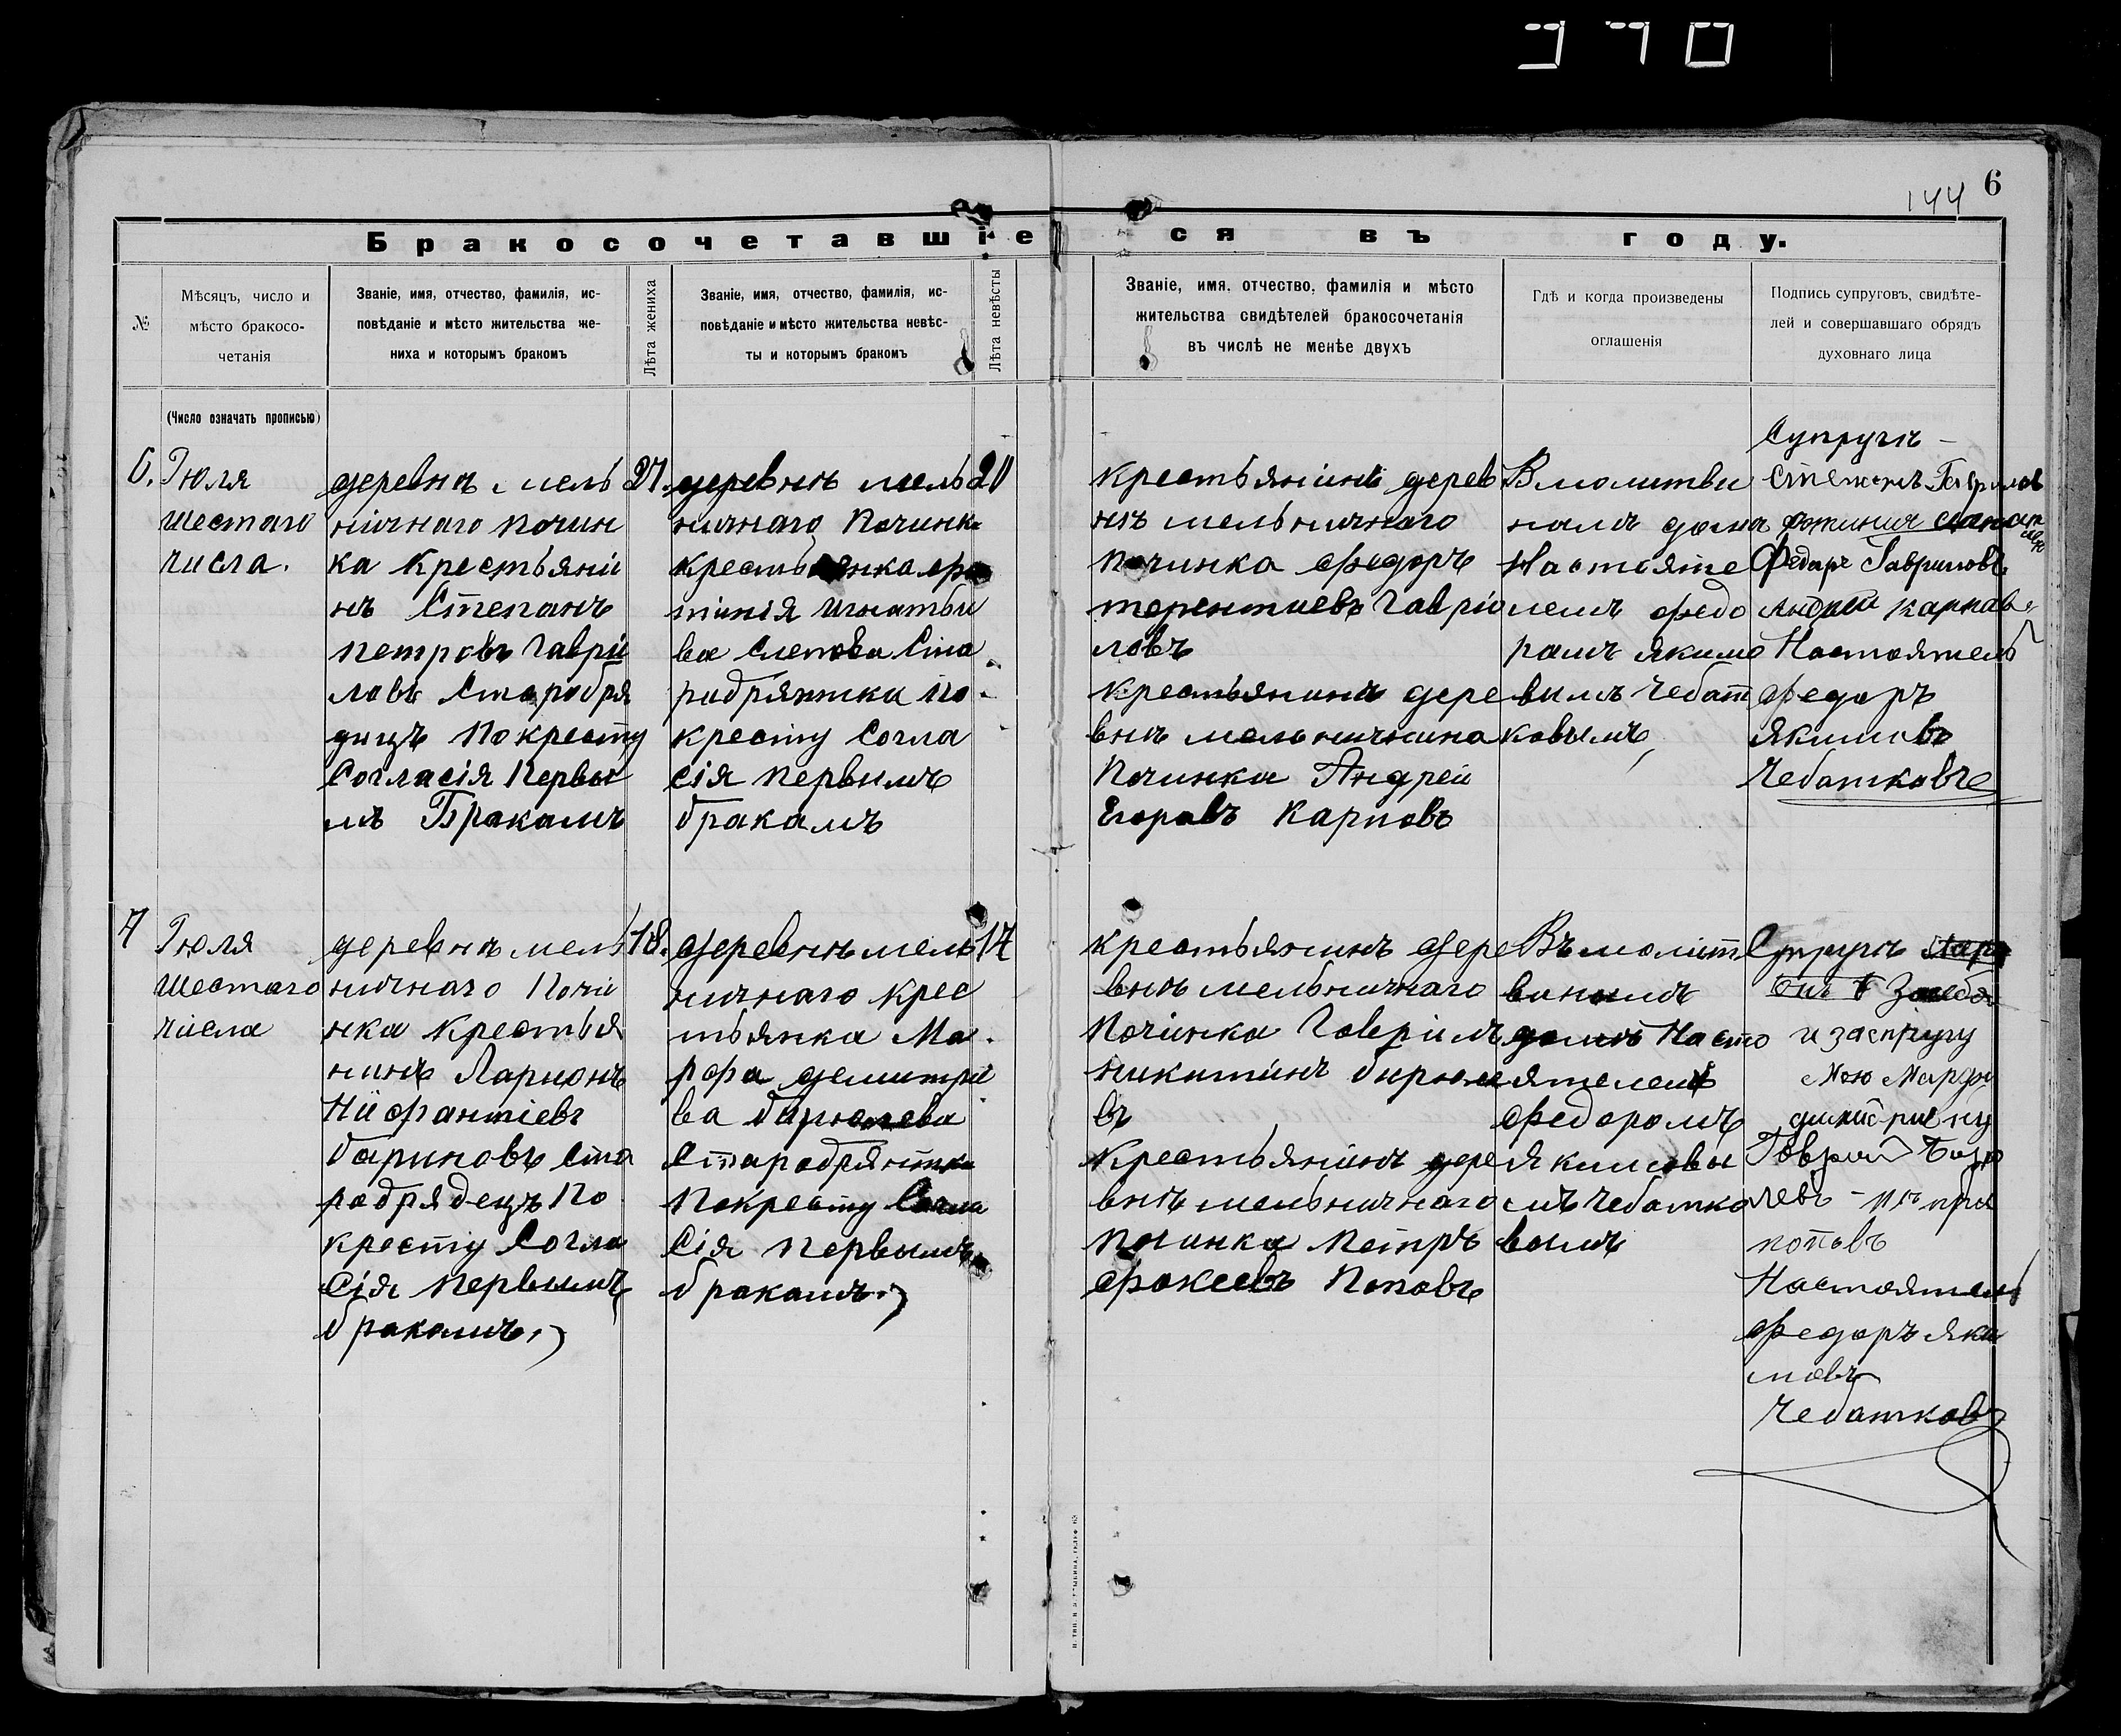 144 6
Бракосочетавшіеся въ году.
№
Мѣсяцъ, число и
мѣсто бракосо-
четанія
Званіе, имя, отчество, фамилія, ис-
повѣданіе и мѣсто жительства же-
ниха и которымъ бракомъ
Лѣта жениха
Званіе, имя, отчество, фамилія, ис-
повѣданіе и мѣсто жительства невѣс-
ты и которымъ бракомъ
Лѣта невѣсты
Званіе, имя, отчество, фамилія и мѣсто
жительства свидѣтелей бракосочетанія
въ числѣ не менѣе двухъ
Гдѣ и когда произведены
оглашенія
Подпись супруговъ, свидѣте-
лей и совершавшаго обрядъ
духовнаго лица
(Число означать прописью)
6.
Іюля
шестаго
числа.
деревнѣ мель
ничнаго почин
ка крестьяни
нъ Степанъ
петровъ Гаврі
ловъ Старобря
дицъ По кресту
Согласія Первы
мъ Бракамъ
27.
деревнѣ мель
ничнаго Починка
крестьянка
тинія Игнатьи
ва Слепова Ста
рабрятка по
кресту Согла
сія первымъ
бракамъ
20
крестьянинъ дерев
нѣ мельничнаго
починка федоръ
терентиевъ Гавріо
ловъ
крестьянинъ дере
внѣ мельничнина
Починка Андрей
Егоровъ Карповъ
В молитви
намъ дома
Настояте
лемъ федо
рамъ якиме
вымъ Чебат
ковымъ
Супруги
Степанъ Гаврилов
Федаръ Гавриловъ
Андрей карпавъ
Настоятель
федоръ
якимовъ
Чебатковъ
7
Іюля
шестаго
числа
деревнѣ мель
ничнаго Почи
нка Крестья
нинъ Ларионъ
Ниофантіевъ
бариновъ Ста
робрядецъ По
кресту Согла
Сія первымъ
бракомъ.
18.
деревнѣ мель
ничнаго крес
тьянка Ма
рфа демитріе
ва бирюлева
Старобрятка
Покресту Согла
Сія первымъ
бракамъ.
17
крестьянинъ дере
внѣ мельничнаго
Починка Гаврилъ
никитинъ бирюле
въ
Крестьянинъ дере
внѣ мельничнаго
починка петръ
фокеевъ Поповъ
Въ молитв
винымъ
домъ Насто
ятелемъ
федоромъ
якимовы
мъ чебатко
вымъ
Супруги
Засебя
и заспругу
Мою Марфу
димитриену
Гаврил Бирю
левъ
поповъ
Настоятель
федоръ яки
мовъ
Чебатковъ